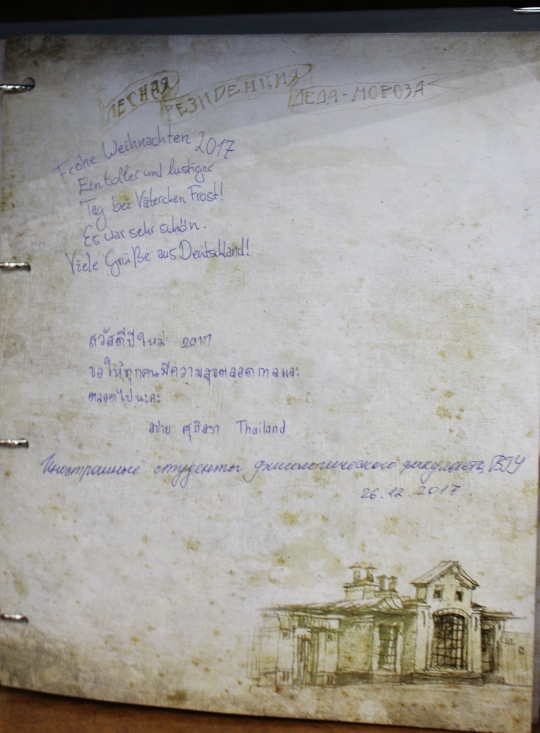 ЛЕСНАЯ РЕЗИДЕНЦИЯ ДЕДА-МОРОЗА
Frohe Weihnachten 2017
Ein toller und lustiger
Tag bei Väterchen Frost!
Es war sehr schön.
Viele Grüße aus Deutschland!
สวัสดีปีใหม่ 2017
ขอให้ทุกคนมีความสุขตลอดกาลและ
ตลอดไปนะคะ
Thailand
Иностранные студенты филологического факультета, ВГУ
26.12.2017